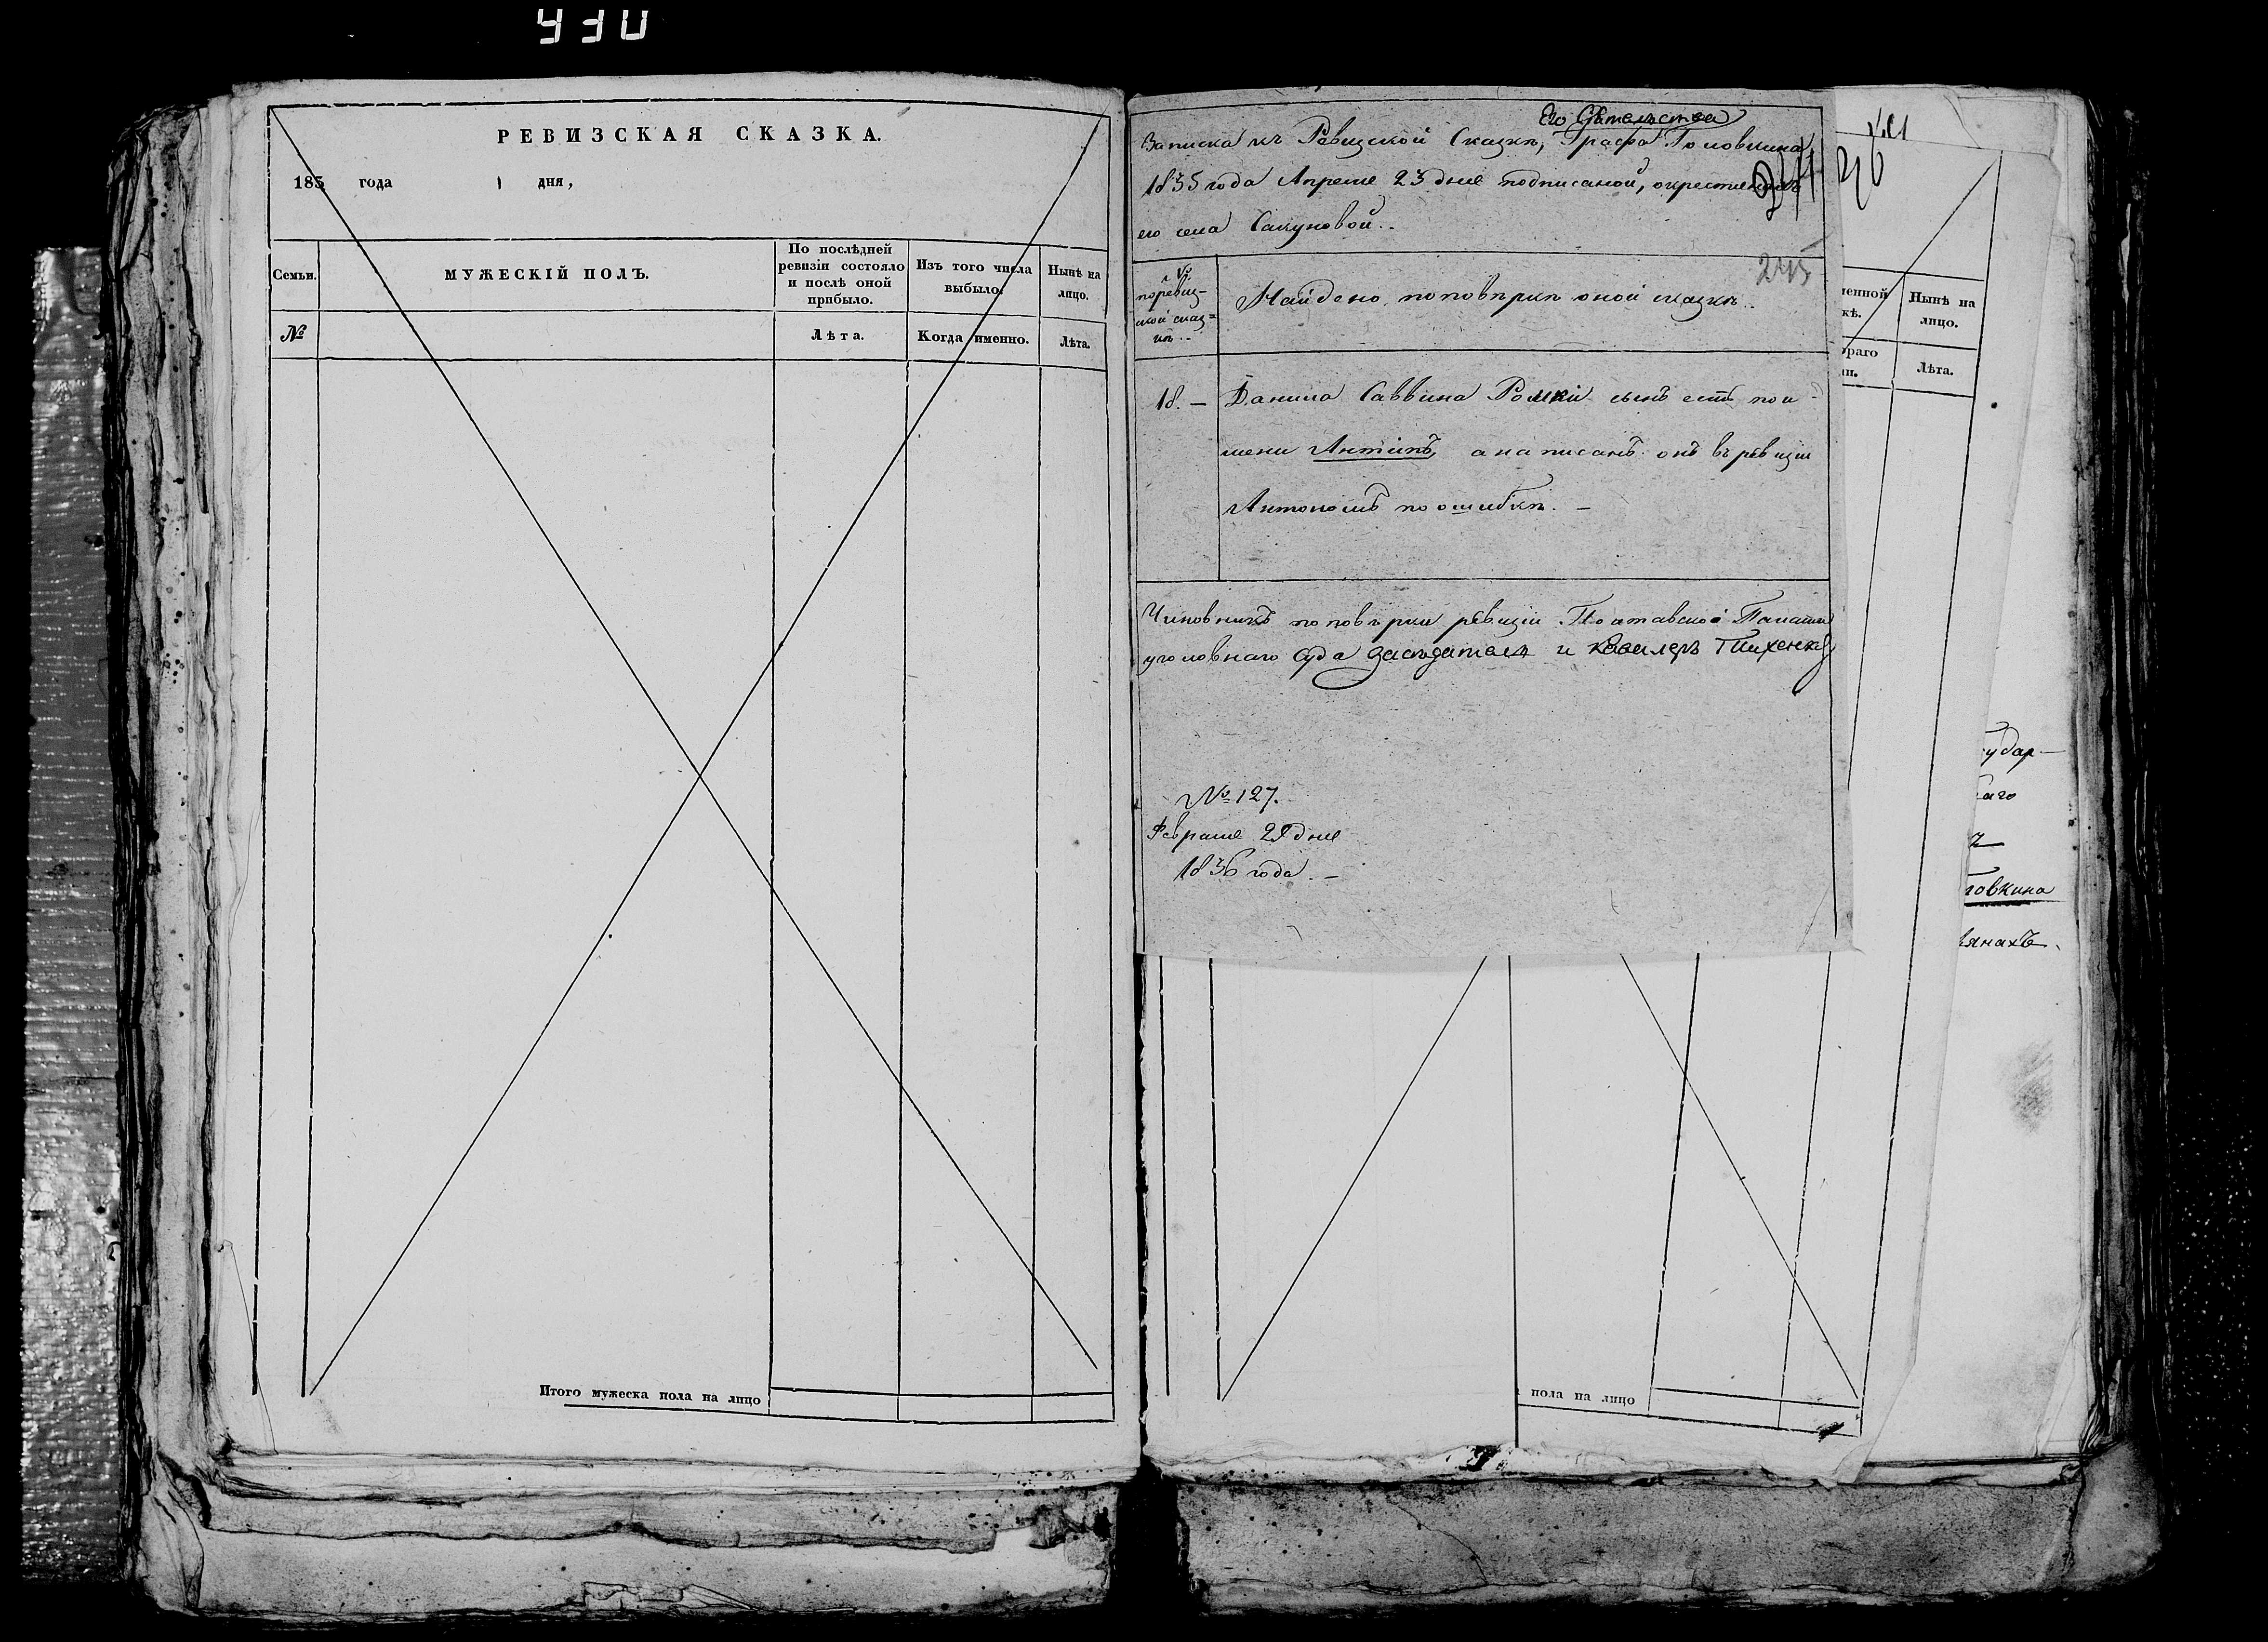 430
РЕВИЗСКАЯ СКАЗКА.
183 года 1 дня,
Семьи.
МУЖЕСКІЙ ПОЛЪ.
По послѣдней
ревизіи состояло
и послѣ оной
прибыло.
Изъ того числа
выбыло.
Нынѣ на
лицо.
№
Лѣта.
Когда именно.
Лѣта.
Итого мужеска пола на лицо
Его Сіятельства
Записка къ Ревизской Сказкѣ, Графа Головкина
1835 года Апреля 23 дня подписаной, окрестянахъ
его села Сакуновой..
244
245
№
поревиз-
ской сказ-
кѣ..
Найдено, поповѣркѣ оной сказкѣ..
18. — Данила Саввина Ромкій сынъ есть пои-
мени Антипъ, а написанъ онъ въ ревизіи
Антономъ по ошибкѣ. —
Чиновникъ по повѣрки ревизіи Полтавской Палаты
уголовнаго Суда Засѣдатель и Кавалеръ
№ 127.
Февраля 29 дня
1836 года. —
пола на лицо
246
ленной
кѣ.
Нынѣ на
лицо.
раго
Лѣта.
удар—
аго
ловкина
янахъ.